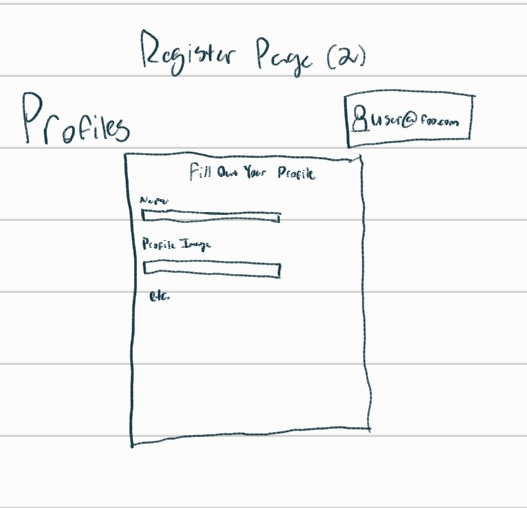 Register Page (2)
Profiles
user@foo.com
Fill Out Your Profile
Name
Profile Image
etc.